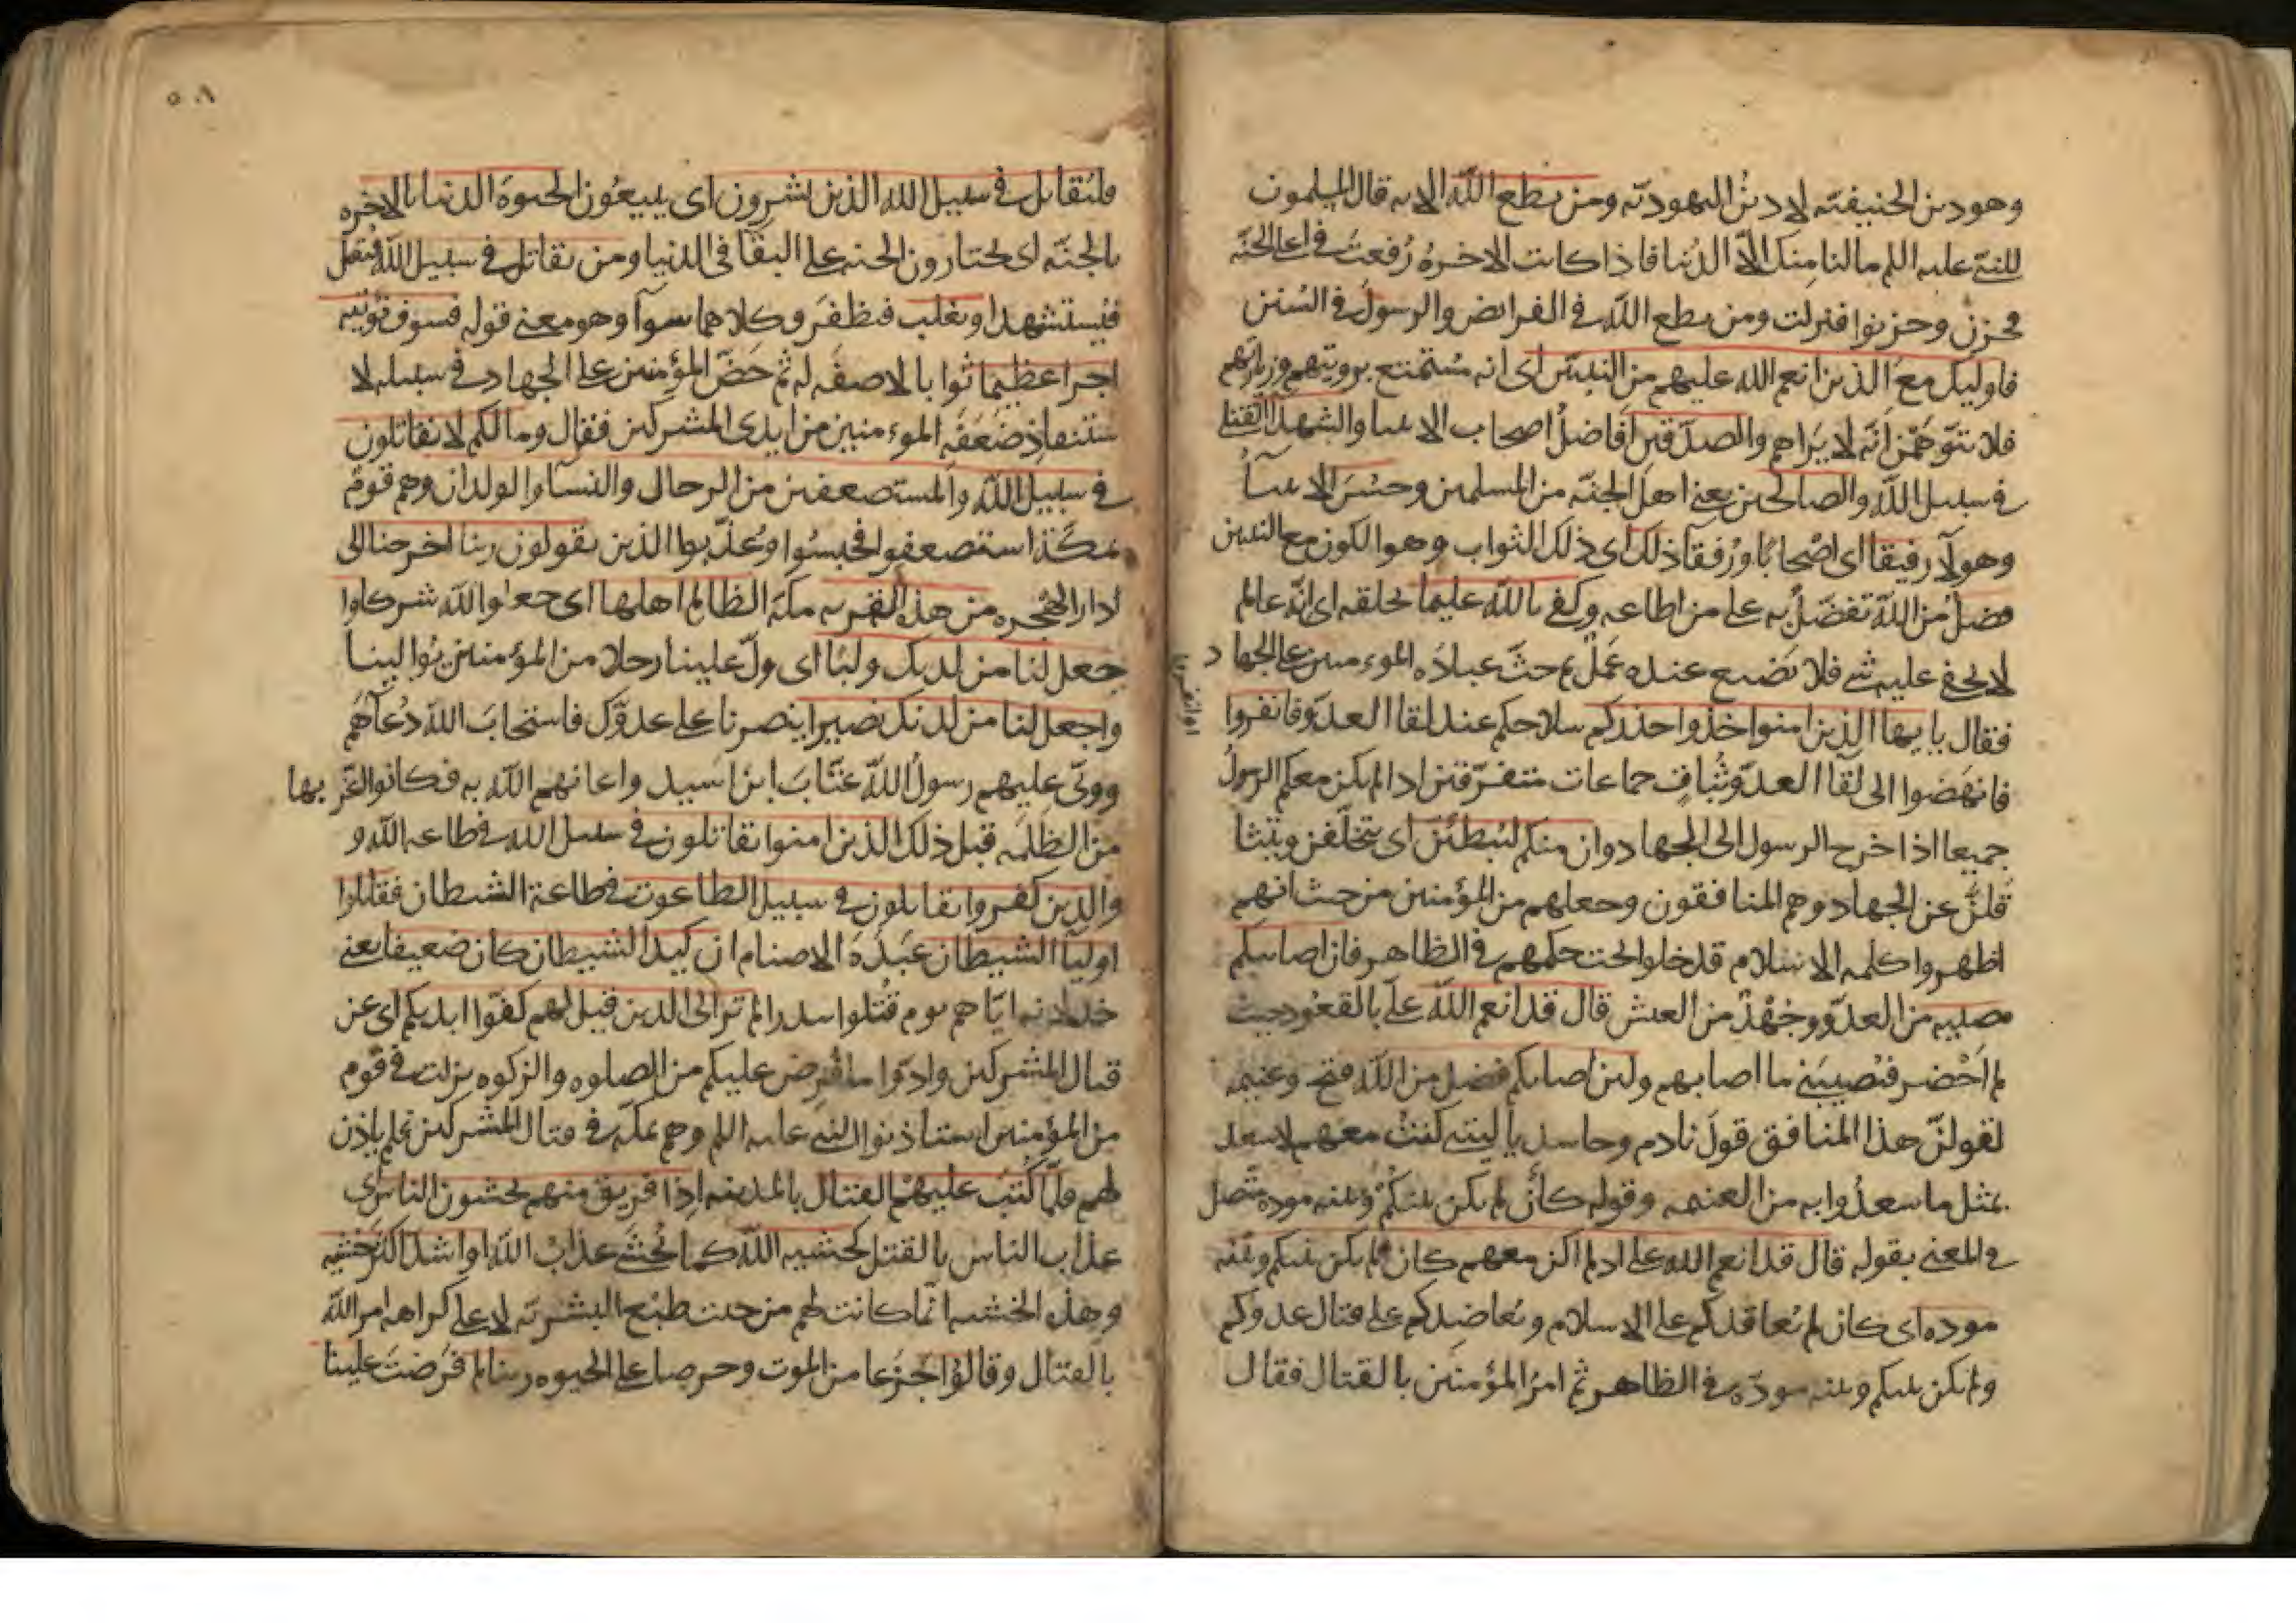 وهو دين الحنيفية لا دين اليهودية ومن يطع الله الاية قال المسلمون
للنبي عليه السلم مالنا منك الا الدنيا فاذا كانت الاخرة رفعت في اعلى الجنة
فحزن وحزنوا فنزلت ومن يطع الله في الفرائض والرسول في السنن
فاوليك مع الذين انعم الله عليهم من النبيين اى انه مستمتع برويتهم وزيارتهم
فلا تتوهمن انه لا يراهم والصديقين افاضل اصحاب الانبيا والشهدا القتلى
في سبيل الله والصالحين يعنى اهل الجنة من المسلمين وحسن الانبيآ
وهولآ رفيقا اى اصحابا ورفقآ ذلك اى ذلك الثواب وهو الكون مع النبيين
فضل من الله تفضل به على من اطاعه وكفى بالله عليما بخلقه اى انه عالم
لا يخفى عليه شي فلا يضيع عنده عمل ثم حث عباده الموءمنين على الجهاد
فقال يا يها الذين امنوا خذوا حذركم سلاحكم عند لقا العدو فانفروا
فانهضوا الى لقآ العدو ثبات جماعات متفرقين اذا لم يكن معكم الرسول
او انفروا
جميعا اذا خرج الرسول الى الجهاد وان منكم لمن ليبطئن اى يتخلفن ويتثا
قلن عن الجهاد وهم المنافقون وجعلهم من المؤمنين من حيث انهم
اظهروا كلمة الاسلام فدخلوا تحت حكمهم في الظاهر فان اصابتكم
مصيبه من العدو وجهد من العيش قال قد انعم الله على بالقعود حيث
لم احضر فيصيبني ما اصابهم ولين اصابكم فضل من الله فتح وغنيمه
ليقولن هذا المنافق قول نادم وحاسد يا ليتنى كنت معهم لاسعد
بمثل ما سعدوا به من الغنيمه وقوله كأن لم يكن بينكم وبينه موده متصل
في المعنى بقوله قال قد انعم الله على اذ لم اكن معهم كان لم يكن بينكم وبينه
موده اى كان لم يعاقدكم على الاسلام ويعاضدكم على قتال عدوكم
ولم يكن بينكم وبينه مودة في الظاهر ثم امر المؤمنين بالقتال فقال
٥٠٨
فليقاتل في سبيل الله الذين يشرون اى يبيعون الحيوة الدنيا بالاخره
بالجنة اى يختارون الجنه على البقا في الدنيا ومن يقاتل في سبيل الله فيقتل
فيستشهد او يغلب فيظفر وكلاهما سوآ وهو معنى قوله فسوف نؤتيه
اجرا عظيما ثوابا لا صفه له ثم حض المؤمنين على الجهاد في سبيله لا
ستنفاذ ضعفة الموءمنين من ايدى المشركين فقال وما لكم لا تقاتلون
في سبيل الله والمستضعفين من الرجال والنسآ والولدان وهم قوم
بمكة استضعفوا فحبسوا وعذبوا الذين يقولون ربنا اخرجنا الى
دار الهجره من هذه القريه مكة الظالم اهلها اى جعلوا لله شركا وا
جعل لنا من لدنك وليا اى ول علينا رجلا من المؤمنين يوالينا
واجعل لنا من لدنك نصيرا ينصرنا على عدوك فاستجاب الله دعآهم
وولى عليهم رسول الله عتاب ابن اسيد واعانهم الله به فكانوا اعز بها
من الظلمة قبل ذلك الذين امنوا يقاتلون في سبيل الله في طاعه الله و
والذين كفروا يقاتلون في سبيل الطاغوت في طاعة الشيطان فقاتلوا
اوليآ الشيطان عبدة الاصنام ان كيد الشيطان كان ضعيفا يعنى
خذلانه اياهم يوم قتلوا ببدر الم تر الى الذين قيل لهم كفوا ايديكم اى عن
قتال المشركين وادوا ما فرض عليكم من الصلوه والزكوه نزلت في قوم
من المؤمنين استاذنوا النبى عليه السلم وهم بمكة في قتال المشركين فلم ياذن
لهم فلما كتب عليهم القتال بالمدينه اذا فريق منهم يخشون الناس اى
عذاب الناس بالقتل كخشيه الله كما يخشى عذاب الله او اشد اكثر خشيه
وهذه الخشية انما كانت لهم من حيث طبع البشرية لا على كراهة امر الله
بالقتال وقالوا جزعا من الموت وحرصا على الحيوه ربنا لم فرضت علينا